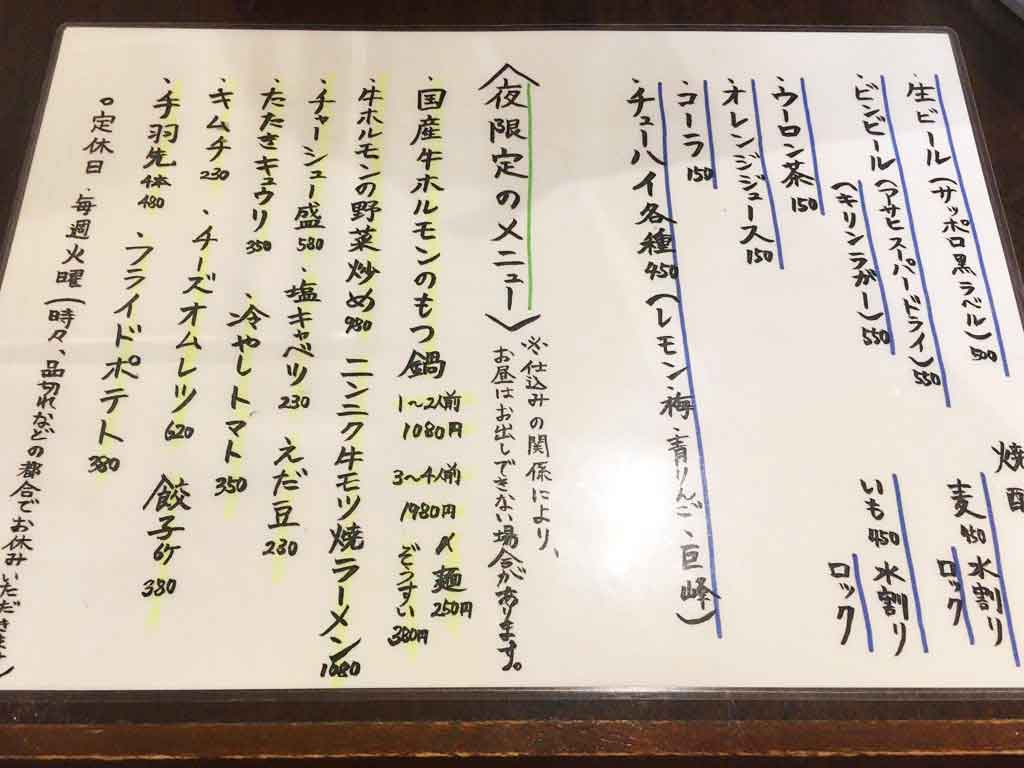 ・生ビール(サッポロ黒ラベル)500
・ビンビール(アサヒスーパードライ)550
(キリンラガー)550
・ウーロン茶150
・オレンジジュース150
・コーラ150
・チューハイ各種450(レモン・梅・青りんご・巨峰)
焼酎
麦450 水割り
ロック
いも450 水割り
ロック
〈夜限定のメニュー〉
※仕込みの関係により、
お昼はお出しできない場合があります。
・国産牛ホルモンのもつ鍋
1〜2人前
1080円
3〜4人前
1980円
〆麺
250円
ぞうすい
380円
・牛ホルモンの野菜炒め980 ニンニク牛モツ焼ラーメン1080
・チャーシュー盛580 ・塩キャベツ230 えだ豆230
・たたきキュウリ350 ・冷やしトマト350
・キムチ230 ・チーズオムレツ620 餃子6ケ380
・手羽先4本480 ・フライドポテト380
○定休日・毎週火曜(時々、品切れなどの都合でお休みいただきます)